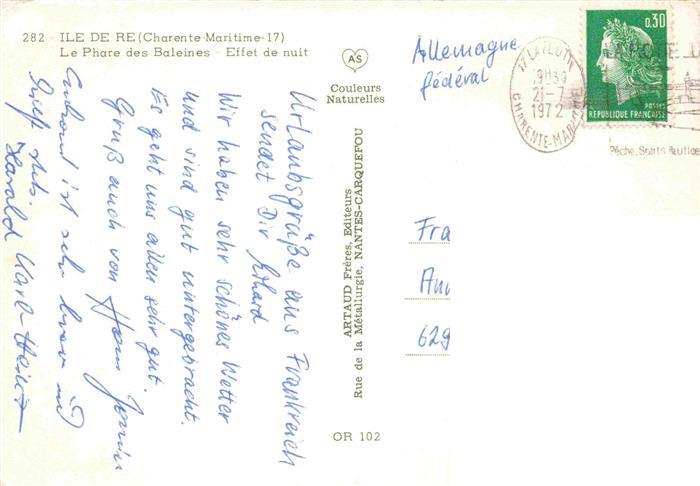 282 - ILE DE RE (Charente-Maritime-17)
Le Phare des Baleines - Effet de nuit
AS
Couleurs
Naturelles
Urlaubsgrüße aus Frankreich
sendet Dir Ekhard
Wir haben sehr schönes Wetter
und sind gut untergebracht.
Es geht uns allen sehr gut.
Gruß auch von
ist sehr brav
Harald Karl-Heinz
ARTAUD Frères, Editeurs
Rue de la Métallurgie, NANTES-CARQUEFOU
OR 102
Allemagne
fédéral
17 LA FLOTTE
9H30
21-7
1972
CHARENTE-MARITIME
0,30
POSTES
REPUBLIQUE FRANÇAISE
Pêche. Sports Nautiques
Fra
629